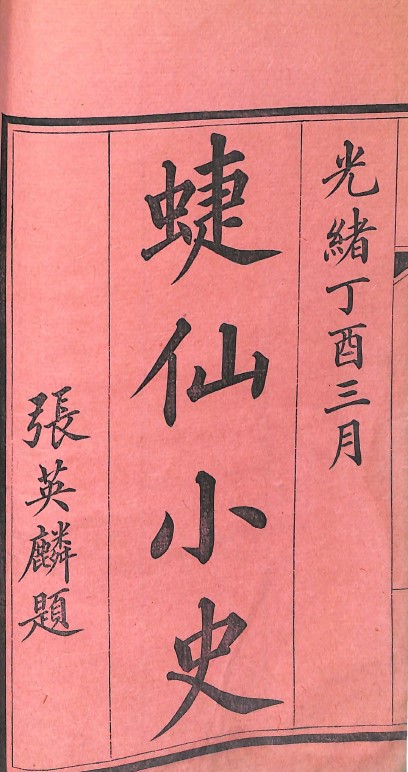 光緒丁酉三月
蜨仙小史
張英麟題